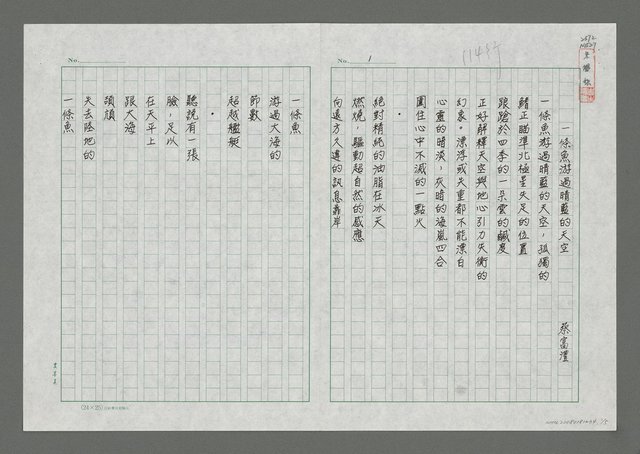 No. 1
一條魚游過晴藍的天空
蔡富澧
一條魚游過晴藍的天空，孤獨的
鰭正瞄準北極星失足的位置
踉蹌於四季的一朵雲的鹹度
正好解釋天空與地心引力失衡的
幻象。漂浮或失重都不能漂白
心靈的暗淡，灰暗的海嵐四合
圍住心中不滅的一點火
•
絕對精純的油脂在冰天
燃燒，驅動超自然的感應
向遠方久違的訊息靠岸
No.
一條魚
游過大海的
節數
超越艦艇
•
聽說有一張
臉，足以
在天平上
跟大海
頡頏
失去陸地的
一條魚
(24×25)